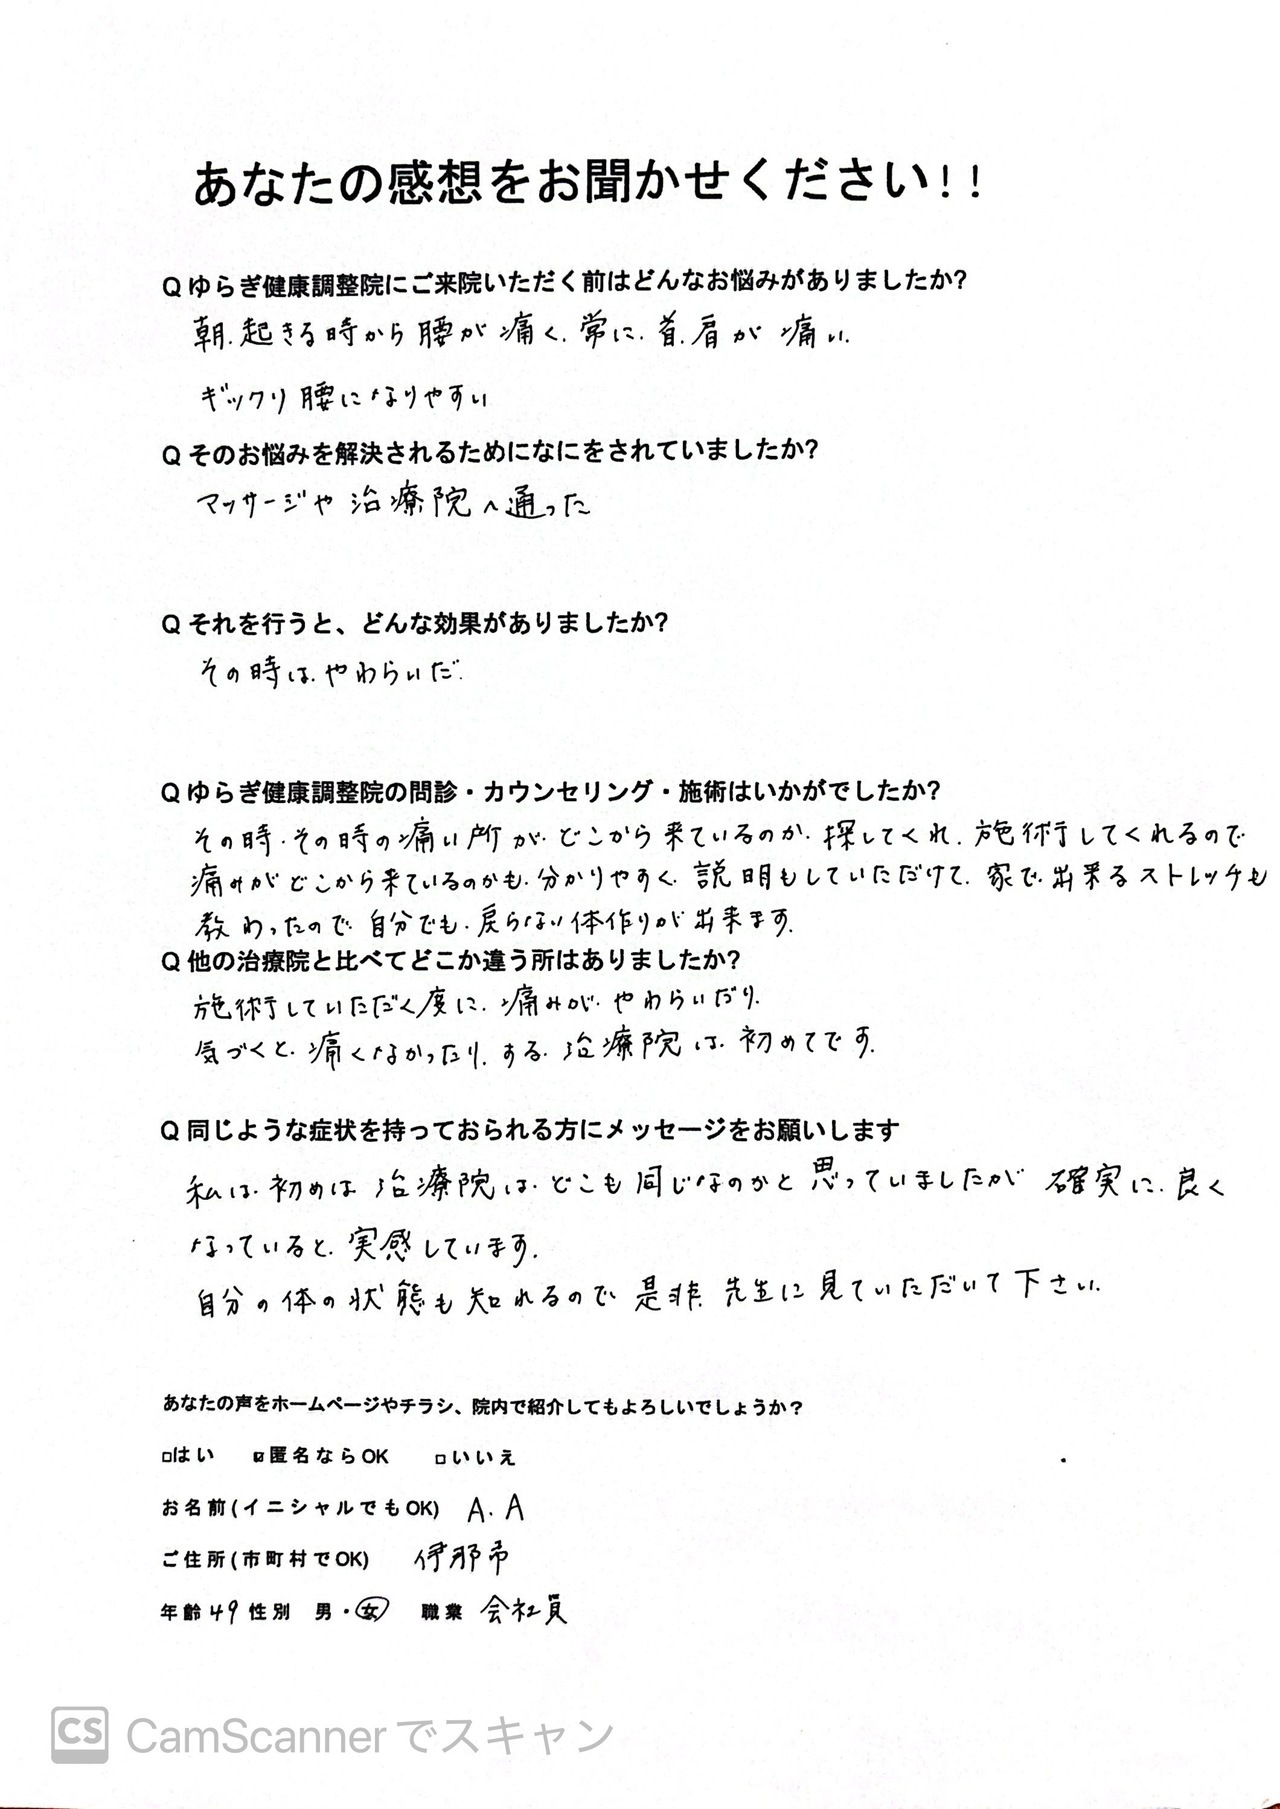 あなたの感想をお聞かせください!!
Q ゆらぎ健康調整院にご来院いただく前はどんなお悩みがありましたか?
朝.起きる時から腰が痛く.常に.首.肩が痛い.
ギックリ腰になりやすい
Q そのお悩みを解決されるためになにをされていましたか?
マッサージや治療院へ通った
Q それを行うと、どんな効果がありましたか?
その時は.やわらいだ.
Q ゆらぎ健康調整院の問診・カウンセリング・施術はいかがでしたか?
その時.その時の痛い所が.どこから来ているのか.探してくれ.施術してくれるので
痛みがどこから来ているのかも.分かりやすく.説明もしていただけて.家で.出来るストレッチも
教わったので.自分でも.戻らない体作りが出来ます.
Q 他の治療院と比べてどこか違う所はありましたか?
施術していただく度に.痛みが.やわらいだり.
気づくと.痛くなかったり.する.治療院は.初めてです.
Q 同じような症状を持っておられる方にメッセージをお願いします
私は.初めは治療院は.どこも同じなのかと思っていましたが確実に.良く
なっていると.実感しています.
自分の体の状態も知れるので是非.先生に見ていただいて下さい.
あなたの声をホームページやチラシ、院内で紹介してもよろしいでしょうか?
□はい ☑匿名ならOK □いいえ
お名前(イニシャルでもOK) A.A
ご住所(市町村でOK) 伊那市
年齢 49 性別 男・女 職業 会社員
CS CamScannerでスキャン